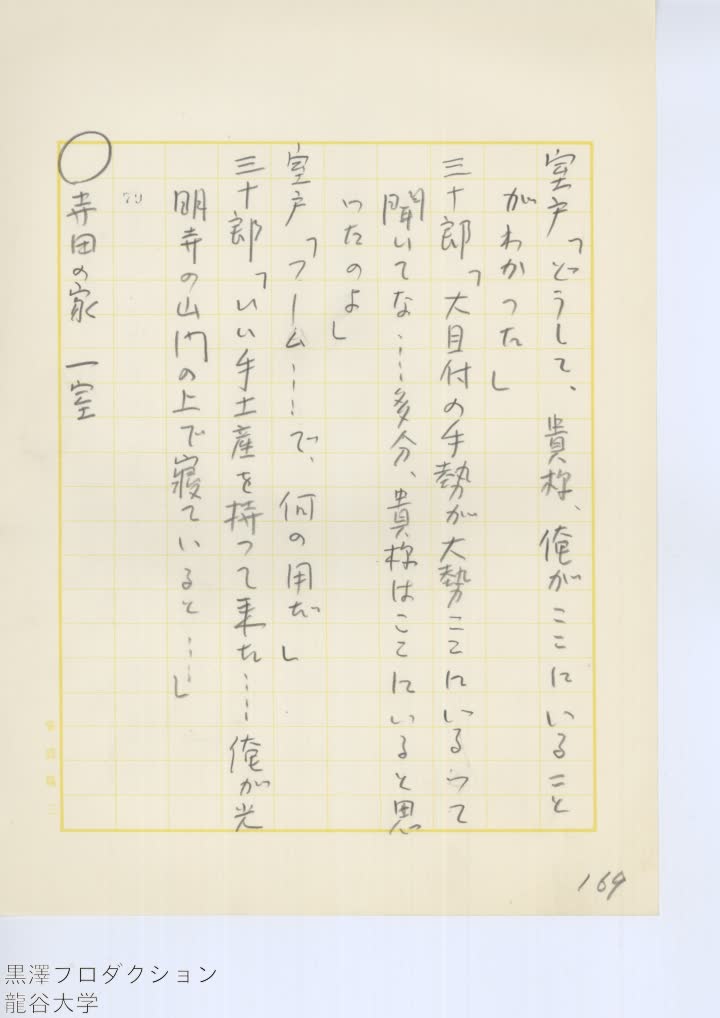 室戸「どうして、貴様、俺がここにいること
がわかった」
三十郎「大目付の手勢が大勢ここにいるって
聞いてな……多分、貴様はここにいると思
ったのよ」
室戸「フーム……で、何の用だ」
三十郎「いい手土産を持って来た……俺が光
明寺の山門の上で寝ていると……」
79
◯寺田の家　一室
169
黒澤プロダクション
龍谷大学